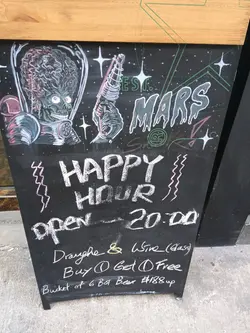 MARS
HAPPY
HOUR
OPEN — 20:00
Draught & Wine (Glass)
Buy ① Get ① Free
Bucket of 6 Btl Beer $188up